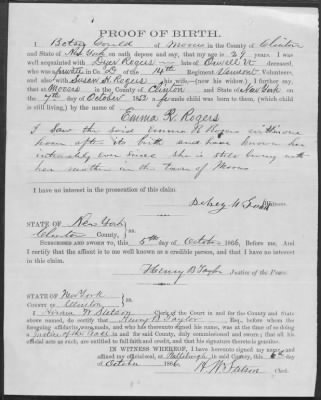 PROOF OF BIRTH.
I Betsey Gould of Mooers in the County of Clinton
and State of New York on oath depose and say, that my age is 28 years. I was
well acquainted with Dyer Rogers late of Orwell Vt deceased,
who was private in Co. D of the 14th Regiment Vermont Volunteers,
and also with Susan A Rogers his wife,—(now his widow). I further say
that at Mooers in the County of Clinton and State of New York on
the 7th day of October 1852 a female child was born to them, (which child
is still living,) by the name of
Emma R. Rogers
I saw the said Emma R Rogers in
home after its birth and have known her
intimately ever since she is still living with
her mother in the town of Mooers
I have an interest in the prosecution of this claim.
Witness.
STATE OF New York
Clinton County, } ss:
SUBSCRIBED AND SWORN TO, this 5th day of October 1866, Before me. And I
certify that the affiant is to me well known as a credible person, and that I have no interest in
this claim.
Henry B Taylor Justice of the Peace.
STATE OF New York
COUNTY OF Clinton } ss:
I, Hiram W Clerk of the Court in and for the County and State
above named, do certify that Henry B Taylor Esq., before whom the
foregoing affidavit was made, and who has thereunto signed his name, was at the time of so doing
a Justice of the Peace in and for said County, duly commissioned and sworn; that all his
official acts as such, are entitled to full faith and credit, and that his signature thereto is genuine.
IN WITNESS WHEREOF, I have hereunto signed my name and
affixed my official seal, at Plattsburgh, in said County, this 6th day
of October 1866
H. W. Clerk.